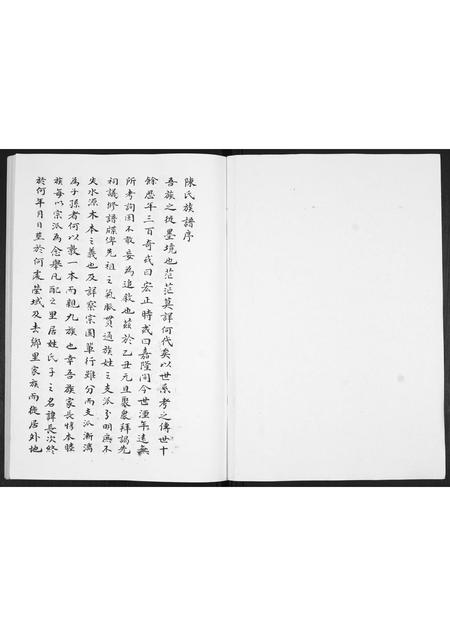 陳氏族譜序
吾族之從墨境也茫茫莫詳何代矣以世系考之傳世十
餘歷年三百奇或曰宏正時或曰嘉隆間今世湮年遠無
所考詢固不敢妄為追敘也茲於乙丑元旦聚衆拜謁先
祠議修譜牒俾先祖之氣脈貫通族姓之支派分明無不
失水源木本之義也及詳察宗圖單行雖分而支派漸漓
為子孫者何以敦一本而親九族也幸吾族家長特本睦
族每以宗派為念舉凡配之里居姓氏子之名諱長次終
於何年月日塟於何處塋域及去鄉里家族而從居外地